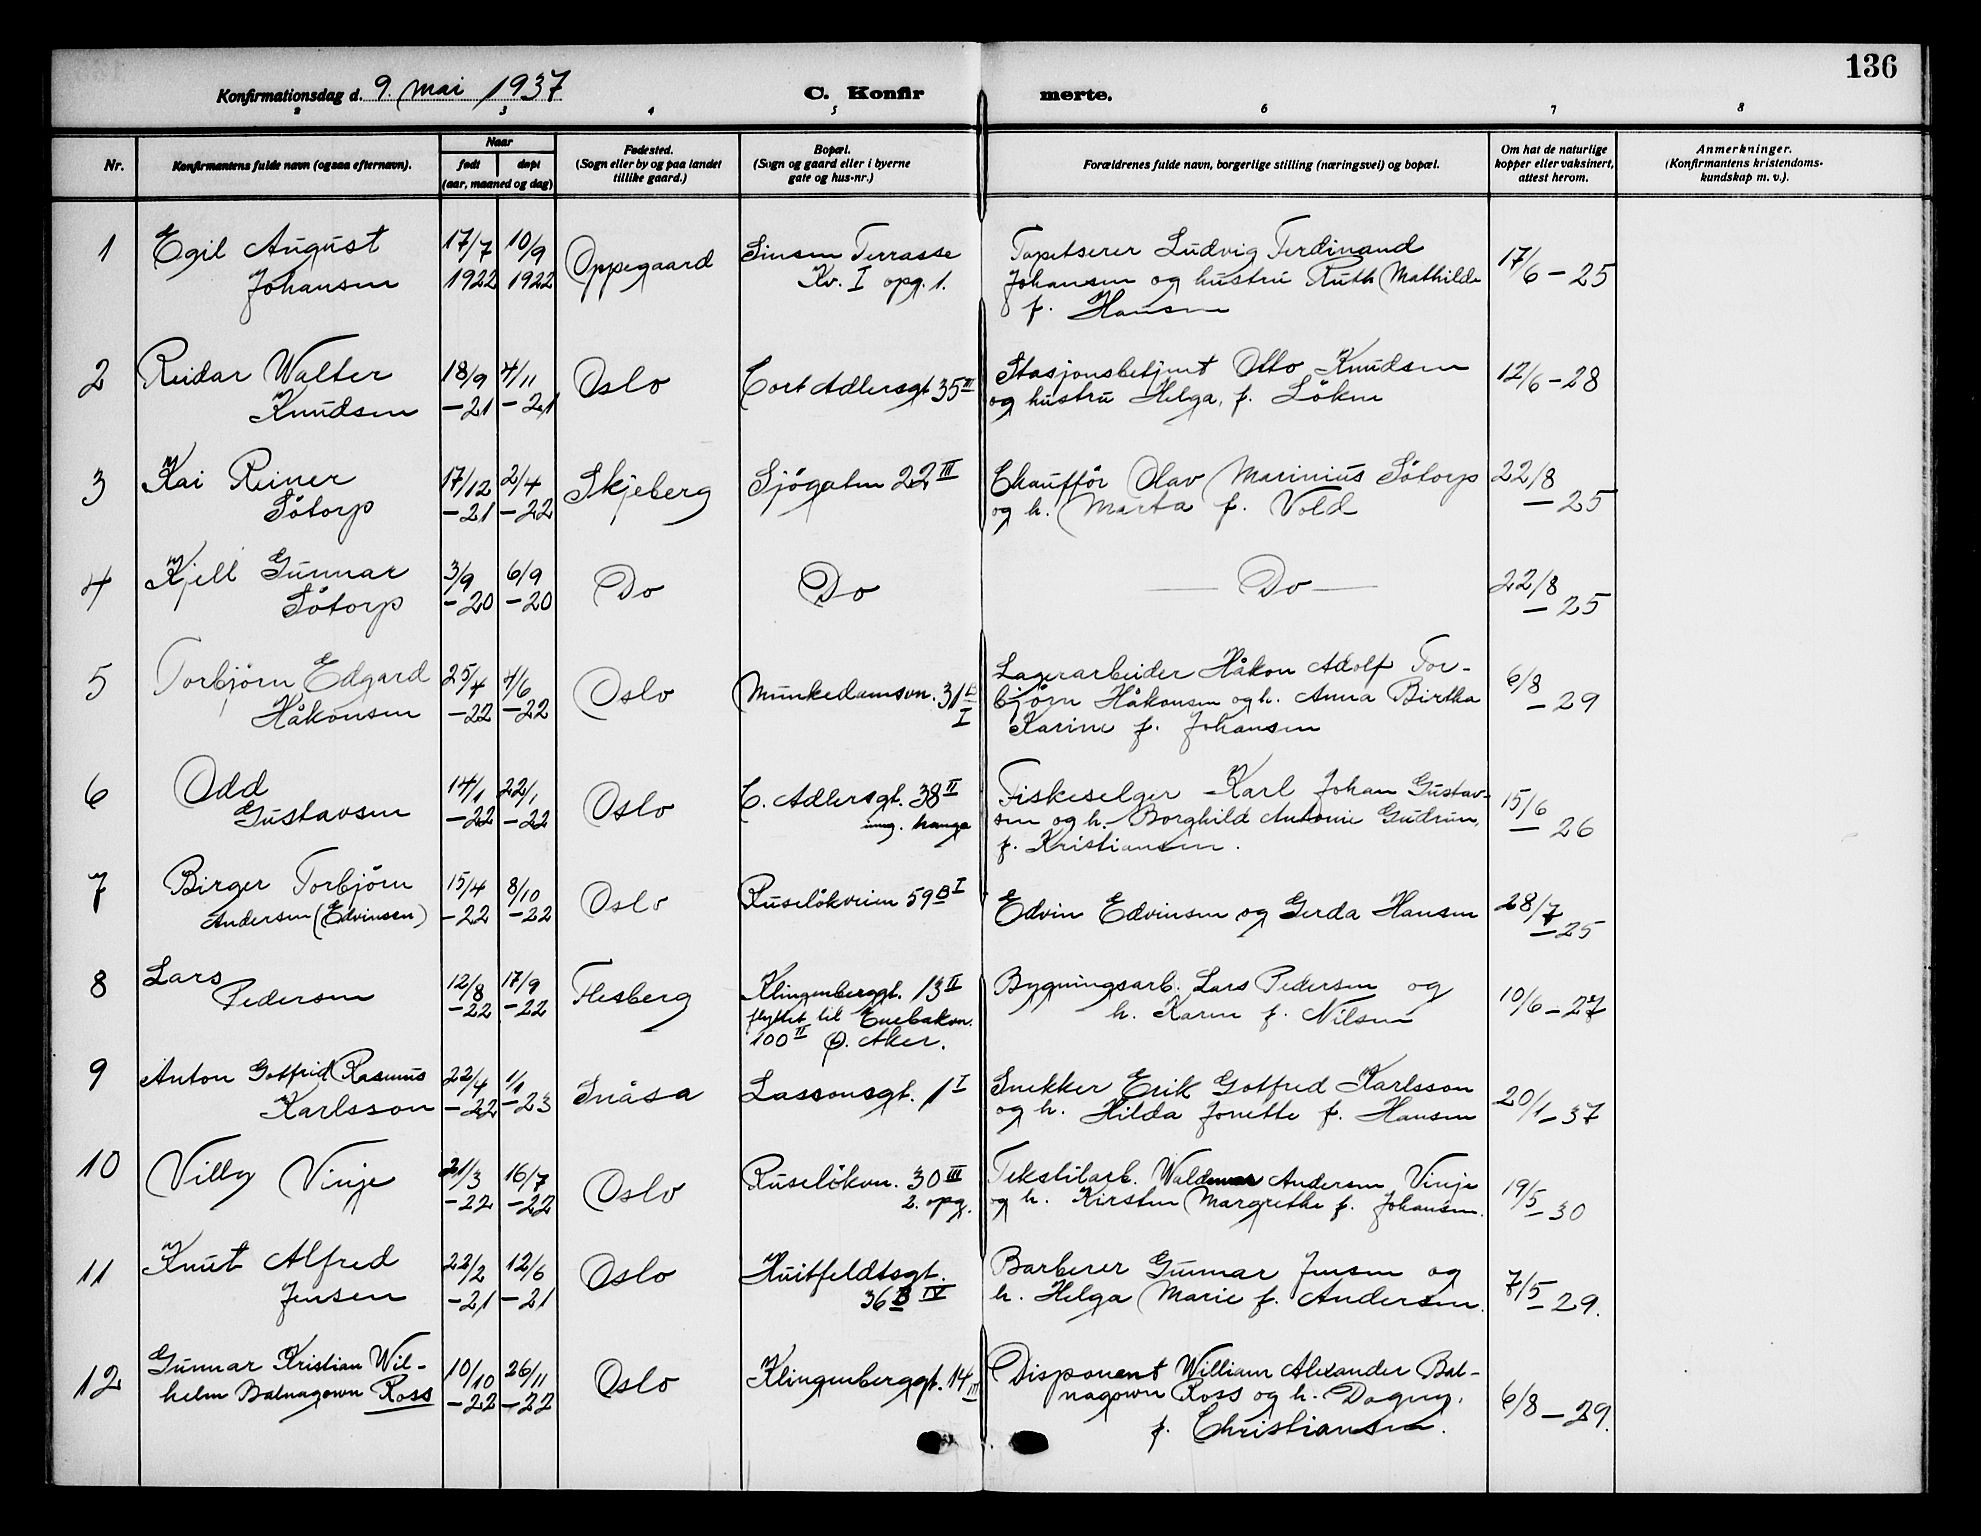 136
Konfirmationsdag d. 9. mai 1937
C. Konfir merte.
2 3 4 5 6 7 8
Nr.
Konfirmantens fulde navn (ogsaa efternavn).
Naar
født døpt
(aar, maaned og dag)
Fødested.
(Sogn eller by og paa landet
tillike gaard.)
Bopæl.
(Sogn og gaard eller i byerne
gate og hus-nr.)
Forældrenes fulde navn, borgerlige stilling (næringsvei) og bopæl.
Om hat de naturlige
kopper eller vaksinert,
attest herom.
Anmerkninger.
(Konfirmantens kristendoms-
kundskap m. v.).
1
Egil August
Johansen
17/7
1922
10/9
1922
Oppegaard
Sinsen Terrasse
Kv. I opg. 1.
Tapetserer Ludvig Ferdinand
Johansen og hustru Ruth Mathilde
f. Hansen
17/6 - 25
2
Reidar Walter
Knudsen
18/9
- 21
4/11
- 21
Oslo
Cort Adlersgt. 35 III
Stasjonsbetjent Otto Knudsen
og hustru Helga, f. Löken
12/6 - 28
3
Kai Reiner
Sötorp
17/12
- 21
2/4
- 22
Skjeberg
Sjögaten 22 III
Chauffør Olav Marinius Sötorp
og h. Marta f. Vold
22/8
- 25
4
Kjell Gunnar
Sötorp
3/9
- 20
6/9
- 20
Do
Do
— Do —
22/8
- 25
5
Torbjörn Edgard
Håkonsen
25/4
- 22
4/6
- 22
Oslo
Munkedamsvn. 31 B
I
Lagerarbeider Håkon Adolf Tor-
bjørn Håkonsen og h. Anna Birtha
Karine f. Johansen
6/8
- 29
6
Odd
Gustavsen
14/1
- 22
22/1
- 22
Oslo
C. Adlersgt. 38 II
Fiskeselger Karl Johan Gustav-
sen og h. Borghild Antonie Gudrun,
f. Kristiansen.
15/6
- 26
7
Birger Torbjörn
Andersen (Edvinsen)
15/4
- 22
8/10
- 22
Oslo
Ruselökveien 59 B I
Edvin Edvinsen og Gerda Hansen
28/7
- 25
8
Lars
Pedersen
12/8
- 22
17/9
- 22
Flesberg
Klingenberggt. 13 II
flyttet til Enebakvn.
100 II Ø. Aker.
Bygningsarb. Lars Pedersen og
h. Karen f. Nilsen
10/6 - 27
9
Anton Gotfrid Rasmus
Karlsson
22/4
- 22
1/1
- 23
Snåsa
Lassonsgt. 1 I
Snekker Erik Gotfred Karlsson
og h. Hilda Jonette f. Hansen
20/1 - 37
10
Villy Vinje
21/3
- 22
16/7
- 22
Oslo
Ruselökvn. 30 III
2. opg.
Tekstilarb. Waldemar Andersen Vinje
og h. Kirsten Margrethe f. Johansen.
19/5
- 30
11
Knut Alfred
Jensen
22/2
- 21
12/6
- 21
Oslo
Huitfeldtsgt.
36 B IV
Barberer Gunnar Jensen og
h. Helga Marie f. Andersen.
7/5
- 29.
12
Gunnar Kristian Wil-
helm Balnagown Ross
10/10
- 22
26/11
- 22
Oslo
Klingenberggt. 14
III
Disponent William Alexander Bal-
nagown Ross og h. Dagny,
f. Christiansen.
6/8 - 29.